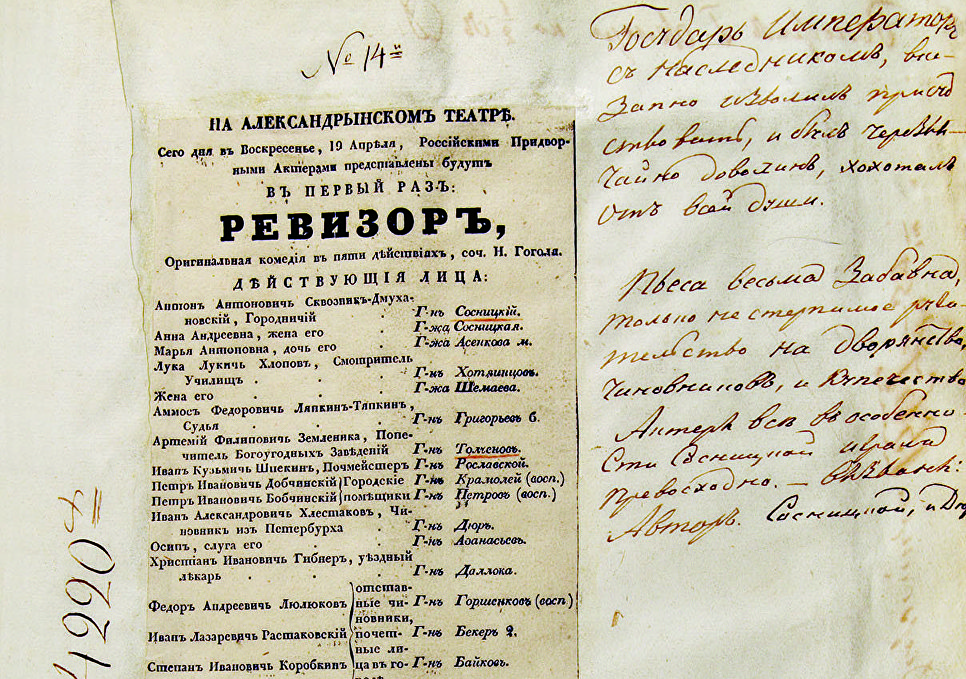 № 14й
НА АЛЕКСАНДРЫНСКОМЪ ТЕАТРѢ.
Сего дня въ Воскресенье, 19 Апрѣля, Россійскими Придвор-
ными Актерами представлены будутъ
ВЪ ПЕРВЫЙ РАЗЪ:
РЕВИЗОРЪ,
Оригинальная комедія въ пяти дѣйствіяхъ, соч. Н. Гоголя.
ДѢЙСТВУЮЩІЯ ЛИЦА:
Антонъ Антоновичь Сквозник-Дмуха-
новскій, Городничій . Г-нъ Сосницкій.
Анна Андреевна, жена его . Г-жа Сосницкая.
Марья Антоновна, дочь его . Г-жа Асенкова м.
Лука Лукичь Хлоповъ, Смотритель
Училищъ . . . . Г-нъ Хотяинцовъ.
Жена его . . . . Г-жа Шемаева.
Аммосъ Федоровичь Ляпкинъ-Тяпкинъ,
Судья . . . . Г-нъ Григорьевъ б.
Артемій Филиповичь Земленика, Попе-
читель Богоугодныхъ Заведеній Г-нъ Толченовъ.
Иванъ Кузьмичь Шпекинъ, Почмейстеръ Г-нъ Рославской.
Петръ Ивановичь Добчинскій Городскіе Г-нъ Крамолей (восп.)
Петръ Ивановичь Бобчинскій помѣщики Г-нъ Петровъ (восп.)
Иванъ Александровичь Хлестаковъ, Чи-
новникъ изъ Петербурха . Г-нъ Дюръ.
Осипъ, слуга его . . . Г-нъ Аѳанасьевъ.
Христіанъ Ивановичь Гибнеръ, уѣздный
лѣкарь . . . . Г-нъ Даллока.
Федоръ Андреевичь Люлюковъ Г-нъ Горшенковъ (восп)
Иванъ Лазаревичь Растаковскій Г-нъ Бекеръ 2.
Степанъ Ивановичь Коробкинъ Г-нъ Байковъ.
отстав-
ные чи-
новники,
почет-
ные ли-
ца въ го-
Государь Императоръ
съ Наследникомъ, вне-
запно изволилъ присут
ствовать, и былъ чрезвы-
чайно доволинъ, хохоталъ
отъ всей души.
Пьеса весьма забавна,
только не стерпимое руга
тельство на дворянство,
чиновниковъ, и купечество
Актеръ все въ особенно-
сти Сосницкой играли
превосходно. — вызваны:
Авторъ. Сосницкой, и Дюр
4220